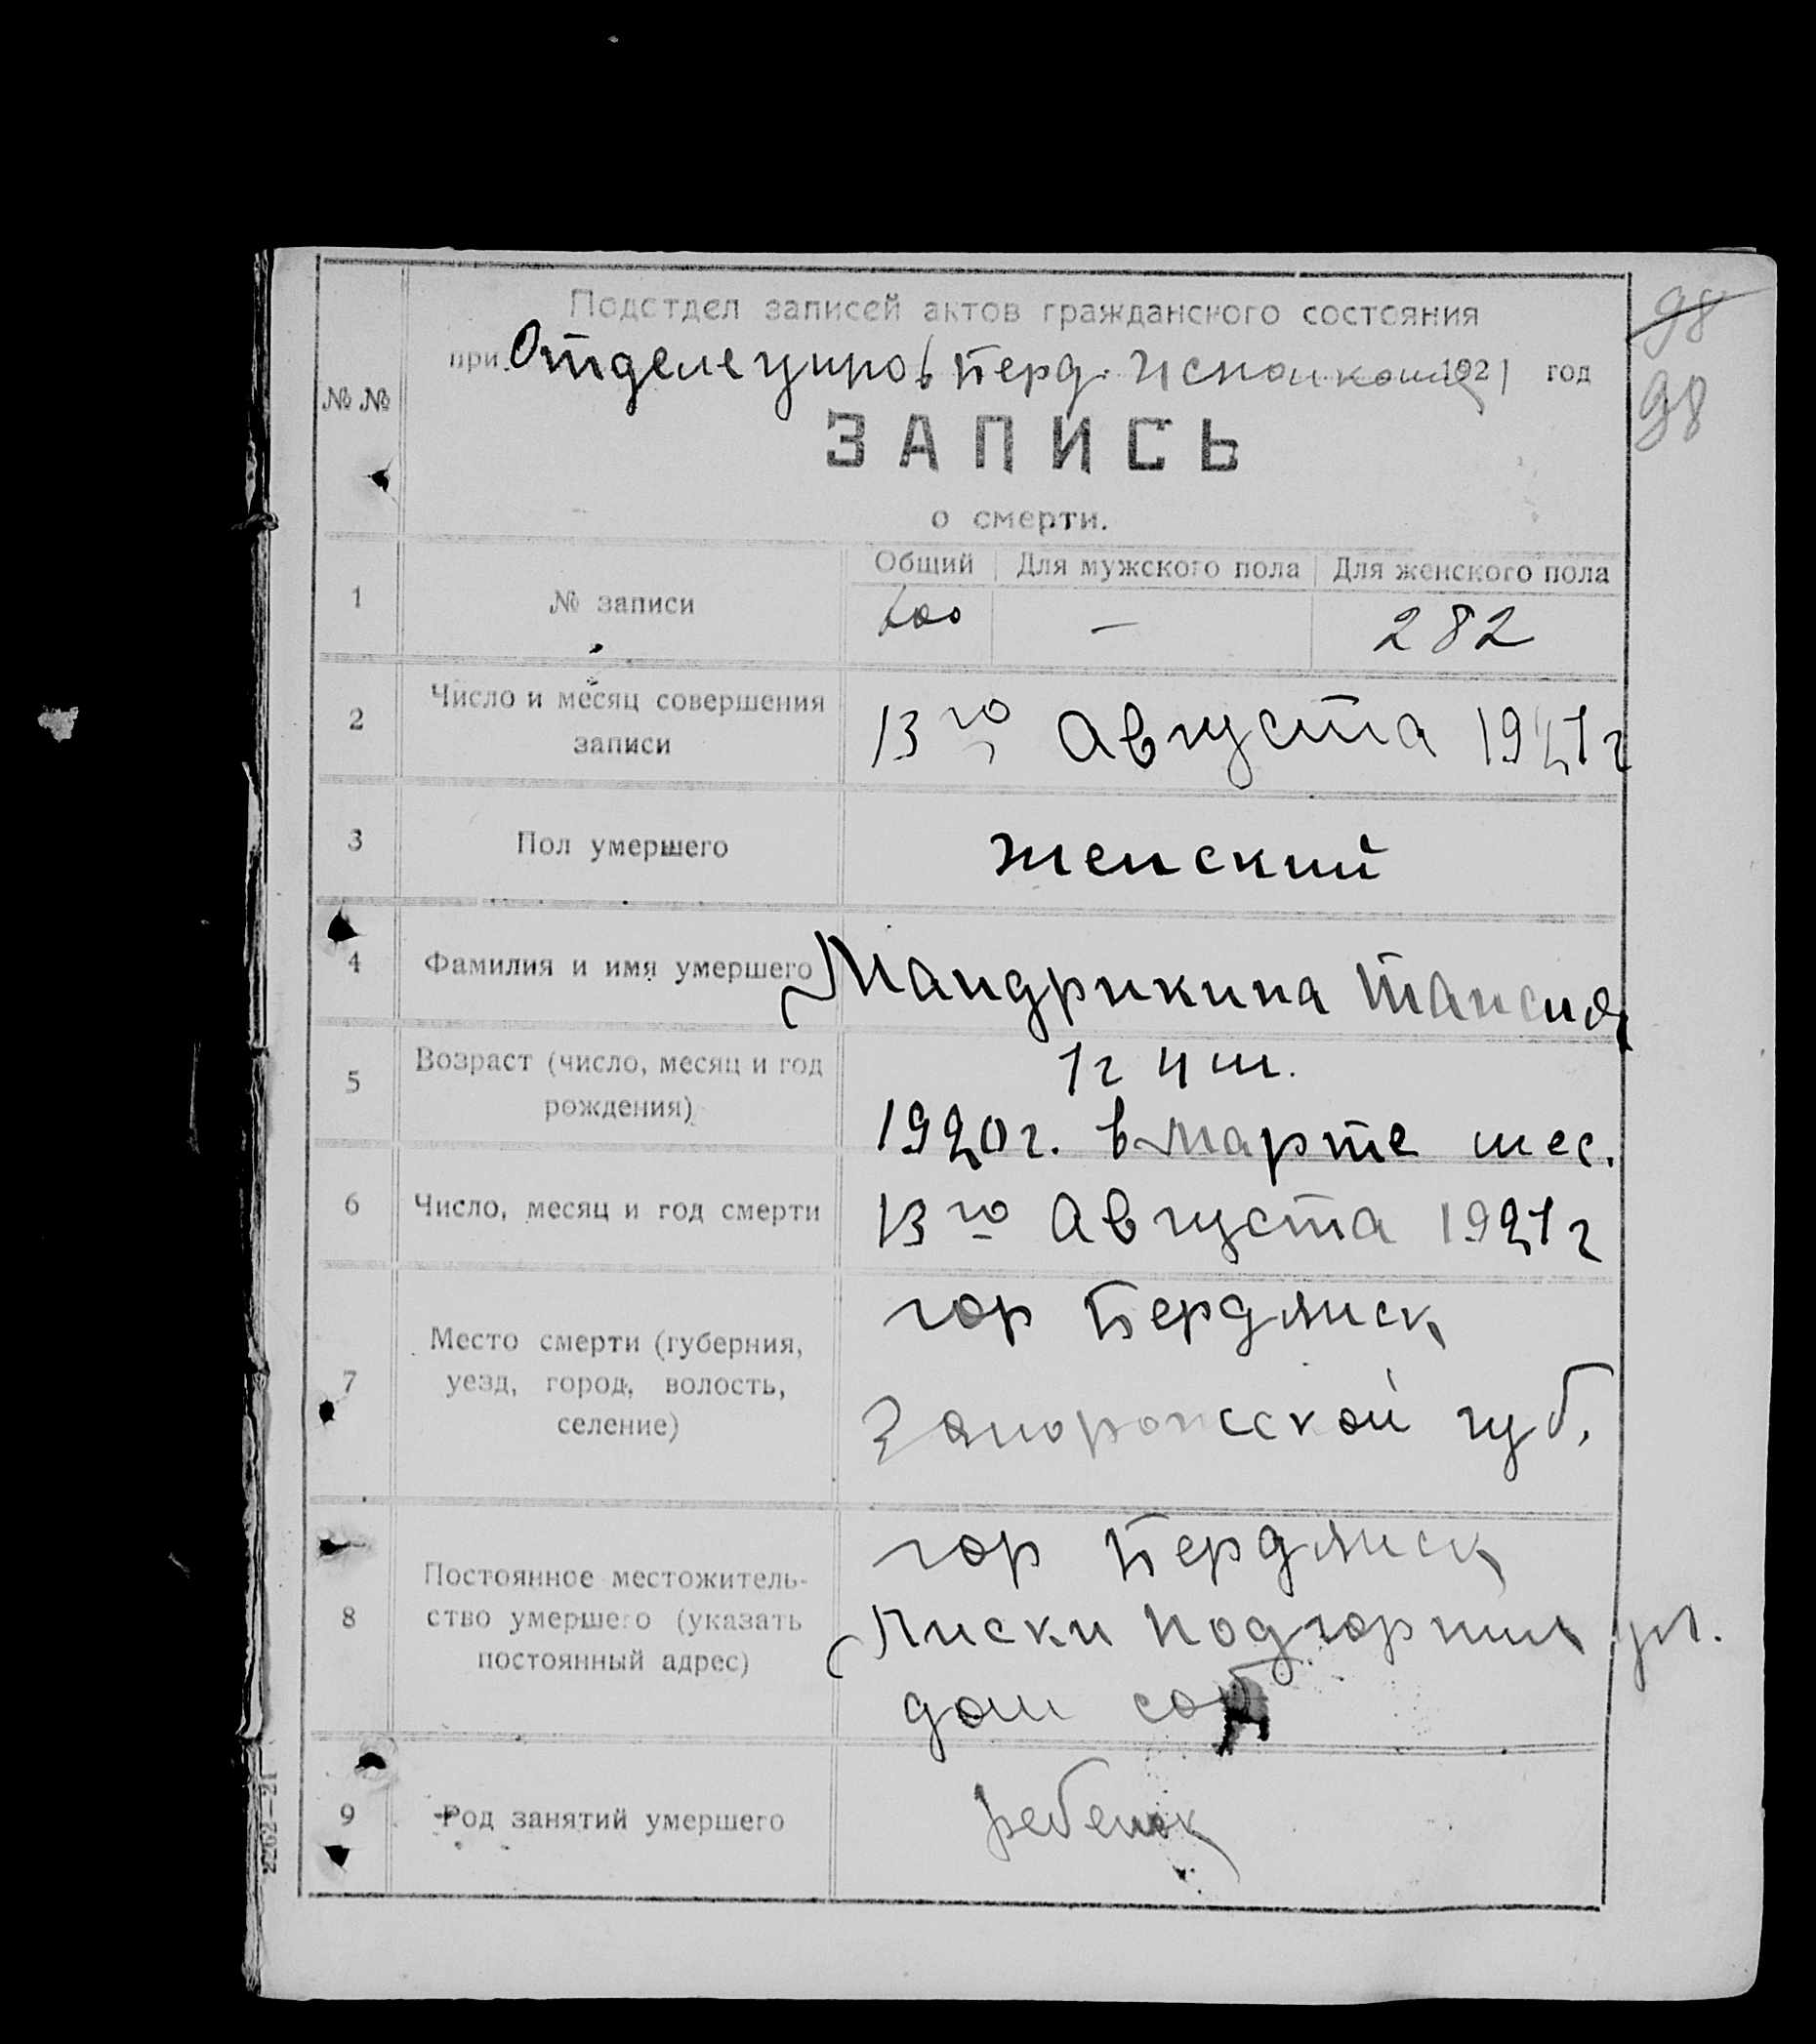 98
98
Подотдел записей актов гражданского состояния
при Отделе управ Берд. Исполкома 1921 год
№ №
ЗАПИСЬ
о смерти.
Общий Для мужского пола Для женского пола
1 № записи 600 — 282
2 Число и месяц совершения записи
13го Августа 1921г
3 Пол умершего женский
4 Фамилия и имя умершего Мандрикина Таисия
5 Возраст (число, месяц и год рождения)
1г 4 м.
1920г. в марте мес.
6 Число, месяц и год смерти 13го Августа 1921г
7 Место смерти (губерния, уезд, город, волость, селение)
гор Бердянск
Запорожской губ.
8 Постоянное местожительство умершего (указать постоянный адрес)
гор Бердянск
Лиски Подгорная ул.
дом
9 Род занятий умершего ребенок
2262—21